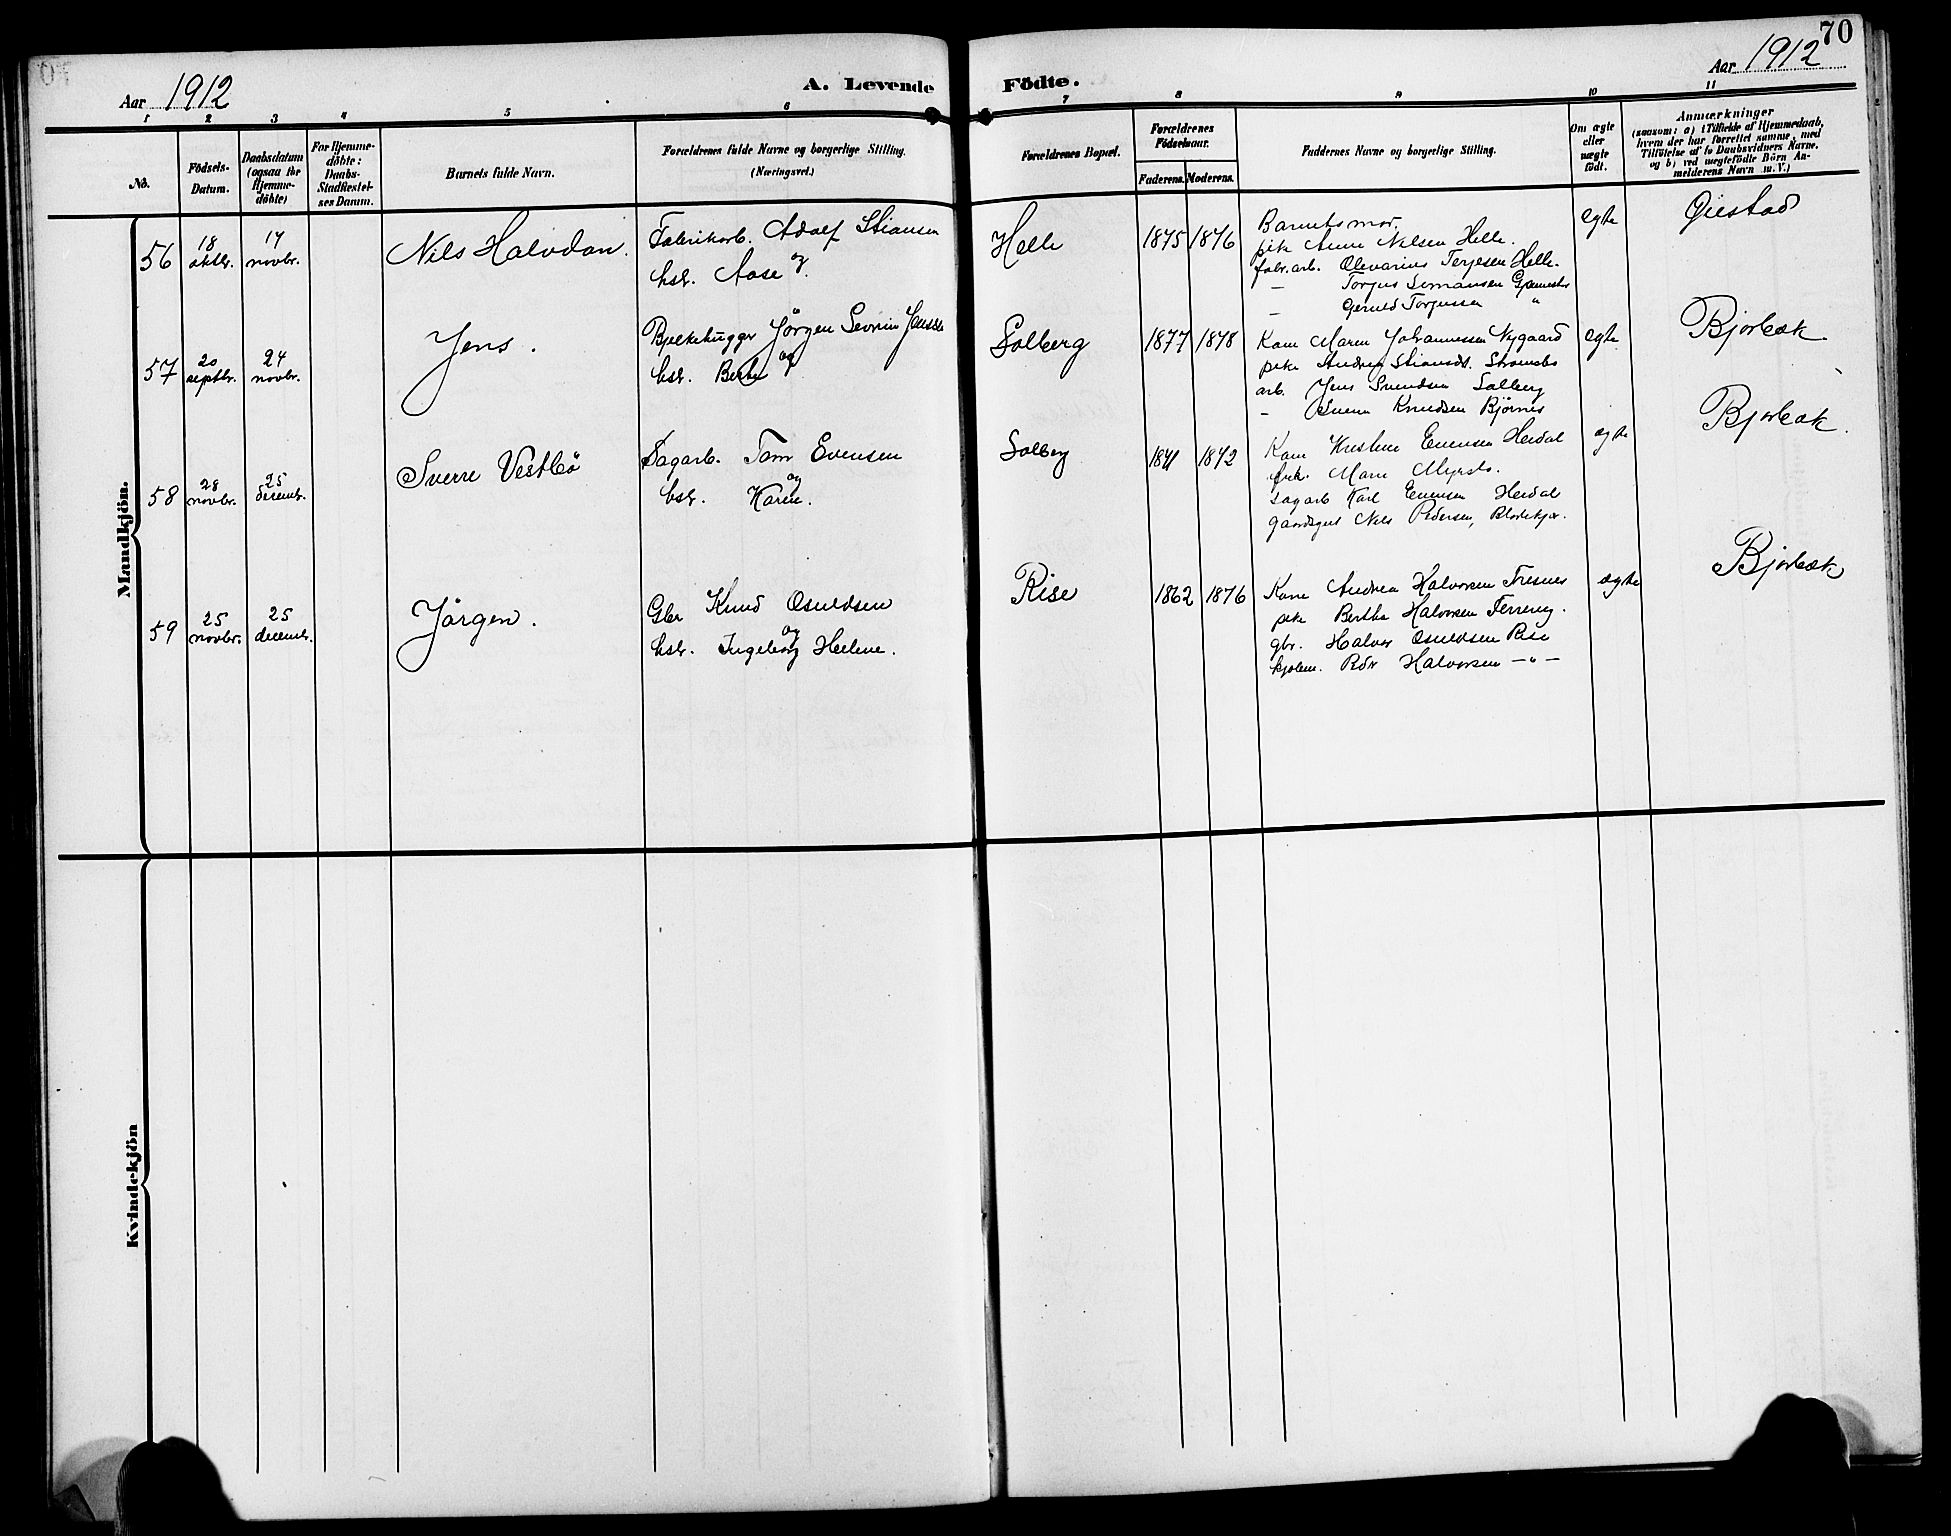 70
Aar 1912 A. Levende Födte. Aar 1912
1 2 3 4 5 6 7 8 9 10 11
No.
Födsels-
Datum.
Daabsdatum
(ogsaa for
Hjemme-
döbte)
For Hjemme-
döbte:
Daabs-
Stadfæstel-
ses Datum.
Barnets fulde Navn.
Forældrenes fulde Navne og borgerlige Stilling.
(Næringsvei.)
Forældrenes Bopæl.
Forældrenes
Födselsaar.
Faderens. Moderens.
Faddernes Navne og borgerlige Stilling.
Om ægte
eller
uægte
födt.
Anmærkninger
(saasom: a) i Tilfælde af Hjemmedaab,
hvem der har forrettet samme, med
Tilföielse af to Daabsvidners Navne,
og b) ved uægtefödte Börn An-
melderens Navn m. V.)
Mandkjön.
56
18
oktbr.
17
novbr.
Nils Halvdan.
Fabrikarb. Adolf Stiansen
og
hstr. Aase.
Helle
1875 1876
Barnets mor.
pike Anne Nilsen Helle.
fabr.arb. Olevarius Terjesen Helle.
— Torjus Simonsen
— Torjussen "
egte
Øiestad
57
20
septbr.
24
novbr.
Jens.
Bjelkehugger Jörgen Sevrin Jensen
og
hstr. Berte
Solberg
1877 1878
Kone Maren Johannessen Nygaard
pike Andrea Stiansdt. Strømsbo
arb. Jens Svendsen Solberg
— Svenn Knudsen Bjørnes
egte
Bjorbæk.
58
28
novbr.
25
decembr.
Sverre Vestbö
Sagarb. Tom Evensen
og
hstr. Karen.
Solberg
1871 1872
Kone Kristine Evensen Heidal
frk. Marie Myrsto.
sagarb. Karl Evensen Heidal
gaardsgut Nils Pedersen,
egte
Bjorbæk.
59
25
novbr.
25
decembr.
Jörgen.
Gbr Knud Osuldsen
og
hstr. Ingeborg Helene.
Rise
1862 1876
Kone Andrea Halvorsen Tresnes
pike Berthe Halvorsen
gbr. Halvor Osuldsen Rise
Halvorsen —"—
ægte
Bjorbæk
Kvindekjön